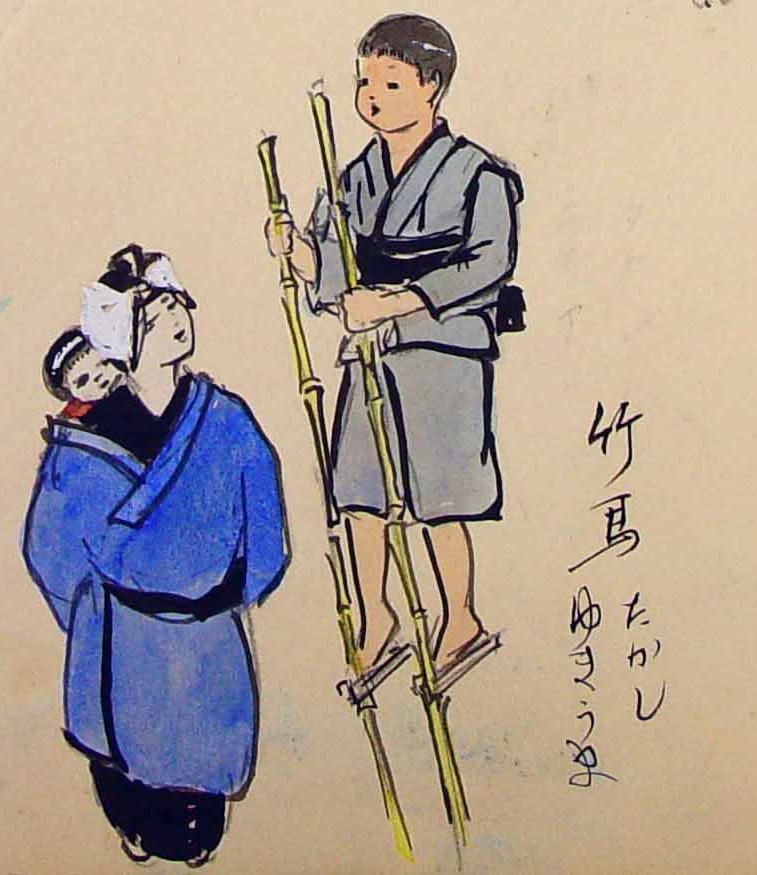 竹馬
たかし
ゆきうま